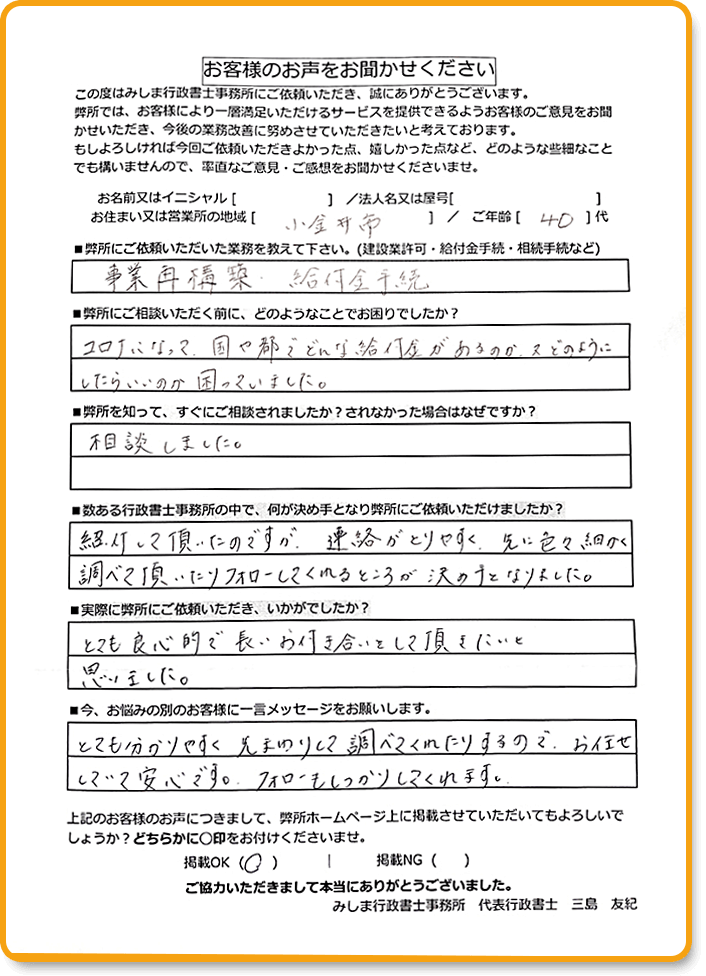 お客様のお声をお聞かせください
この度はみしま行政書士事務所にご依頼いただき、誠にありがとうございます。
弊所では、お客様により一層満足いただけるサービスを提供できるようお客様のご意見をお聞
かせいただき、今後の業務改善に努めさせていただきたいと考えております。
もしよろしければ今回ご依頼いただきよかった点、嬉しかった点など、どのような些細なこと
でも構いませんので、率直なご意見・ご感想をお聞かせくださいませ。
お名前又はイニシャル [ ] ／法人名又は屋号[ ]
お住まい又は営業所の地域 [ 小金井市 ] ／ ご年齢 [ 40 ] 代
■弊所にご依頼いただいた業務を教えて下さい。(建設業許可・給付金手続・相続手続など)
事業再構築・給付金手続
■弊所にご相談いただく前に、どのようなことでお困りでしたか？
コロナになって、国や都でどんな給付金があるのか、又どのように
したらいいのか困っていました。
■弊所を知って、すぐにご相談されましたか？されなかった場合はなぜですか？
相談しました。
■数ある行政書士事務所の中で、何が決め手となり弊所にご依頼いただけましたか？
紹介して頂いたのですが、連絡がとりやすく、先に色々細かく
調べて頂いたりフォローしてくれるところが決め手となりました。
■実際に弊所にご依頼いただき、いかがでしたか？
とても良心的で長いお付き合いとして頂きたいと
思いました。
■今、お悩みの別のお客様に一言メッセージをお願いします。
とても分かりやすく先まわりして調べてくれたりするので、お任せ
していて安心です。フォローもしっかりしてくれます。
上記のお客様のお声につきまして、弊所ホームページ上に掲載させていただいてもよろしいで
しょうか？どちらかに〇印をお付けくださいませ。
掲載OK（○ ） ｜ 掲載NG（ ）
ご協力いただきまして本当にありがとうございました。
みしま行政書士事務所 代表行政書士 三島 友紀